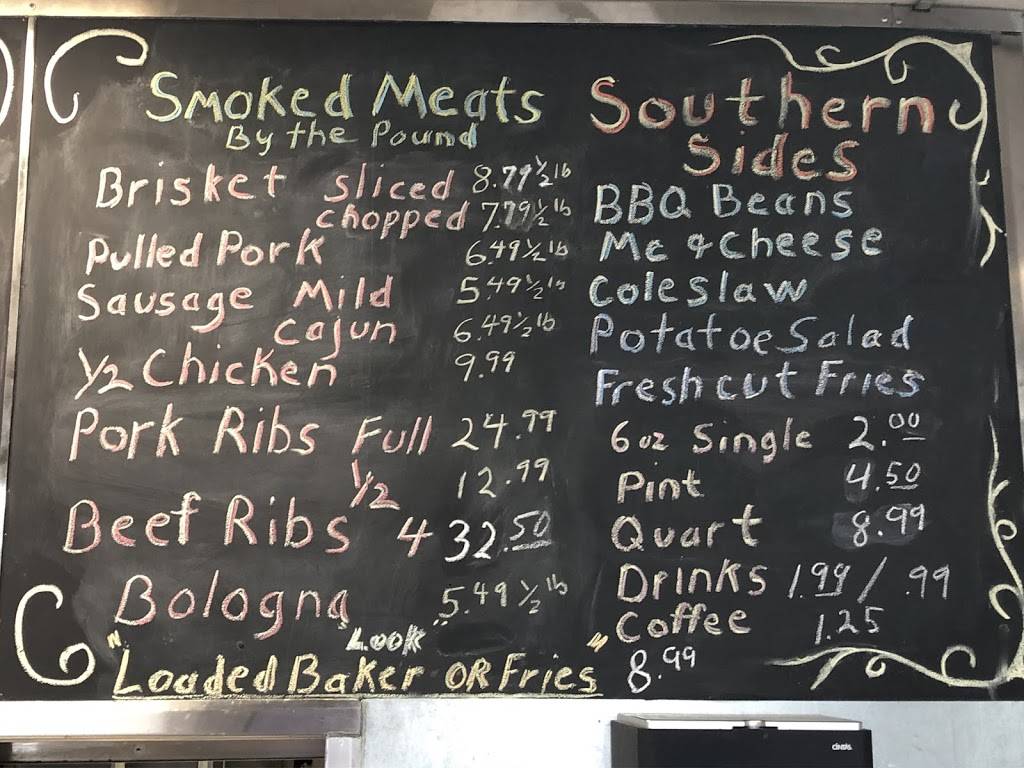 Smoked Meats
By the Pound
Brisket sliced 8.79 1/2 lb
chopped 7.79 1/2 lb
Pulled Pork 6.49 1/2 lb
Sausage Mild 5.49 1/2 lb
Cajun 6.49 1/2 lb
1/2 Chicken 9.99
Pork Ribs Full 24.99
1/2 12.99
Beef Ribs 4 32.50
Bologna 5.49 1/2 lb
"Look"
Loaded Baker OR Fries 8.99
Southern
Sides
BBQ Beans
Mc & Cheese
Coleslaw
Potatoe Salad
Fresh cut Fries
6 oz Single 2.00
Pint 4.50
Quart 8.99
Drinks 1.99 / .99
Coffee 1.25